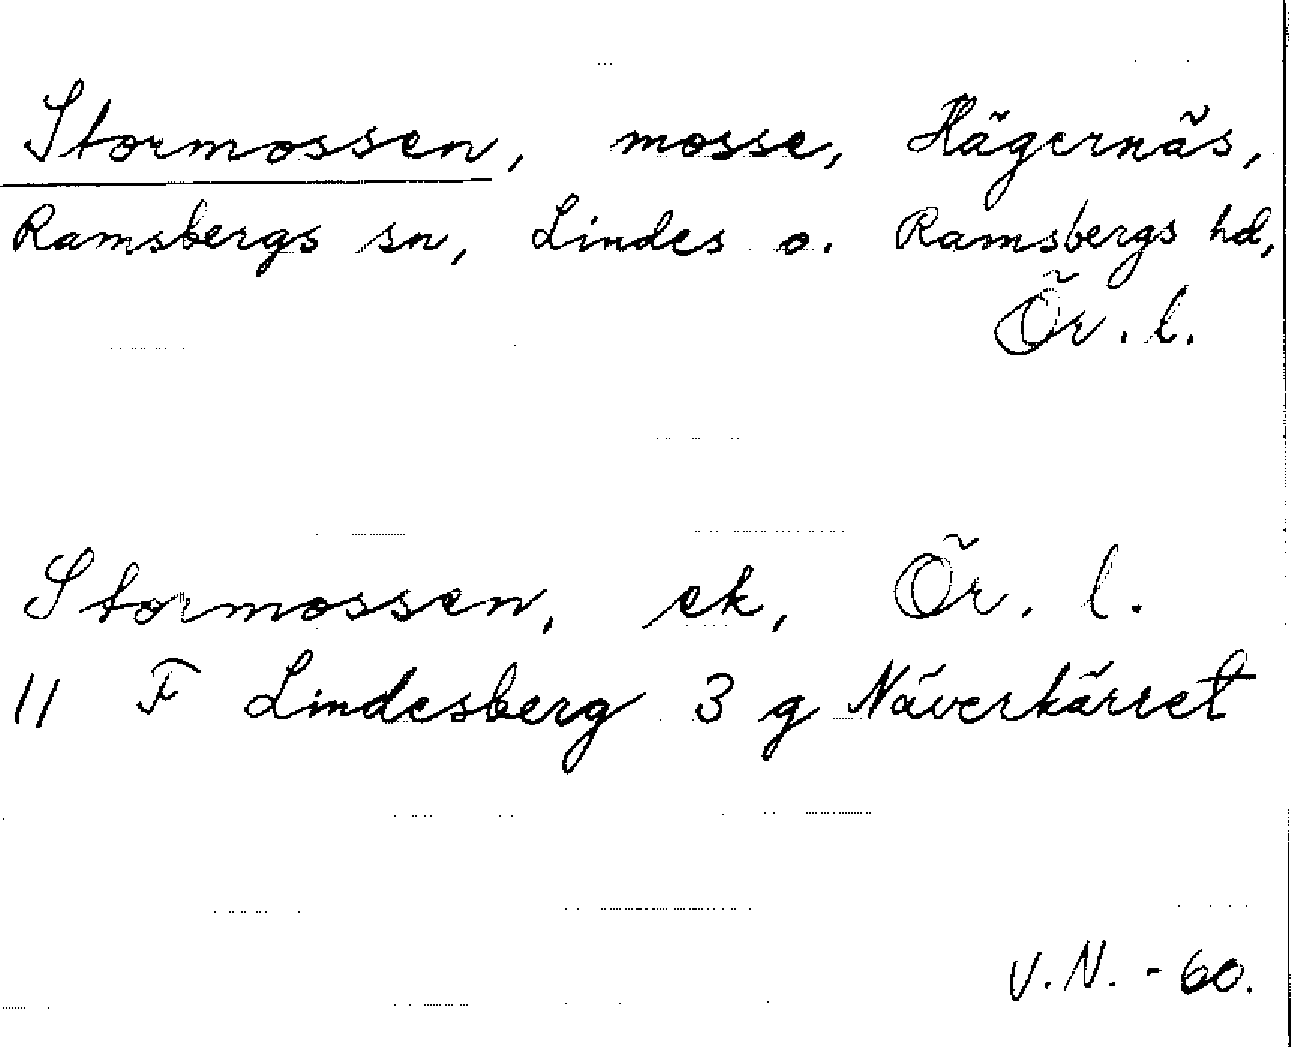 Stormossen, mosse, Hägernäs,
Ramsbergs sn, Lindes o. Ramsbergs hd,
Ör. l.
Stormossen, ek, Ör. l.
11 F Lindesberg 3 g Näverkärret
V.N. - 60.